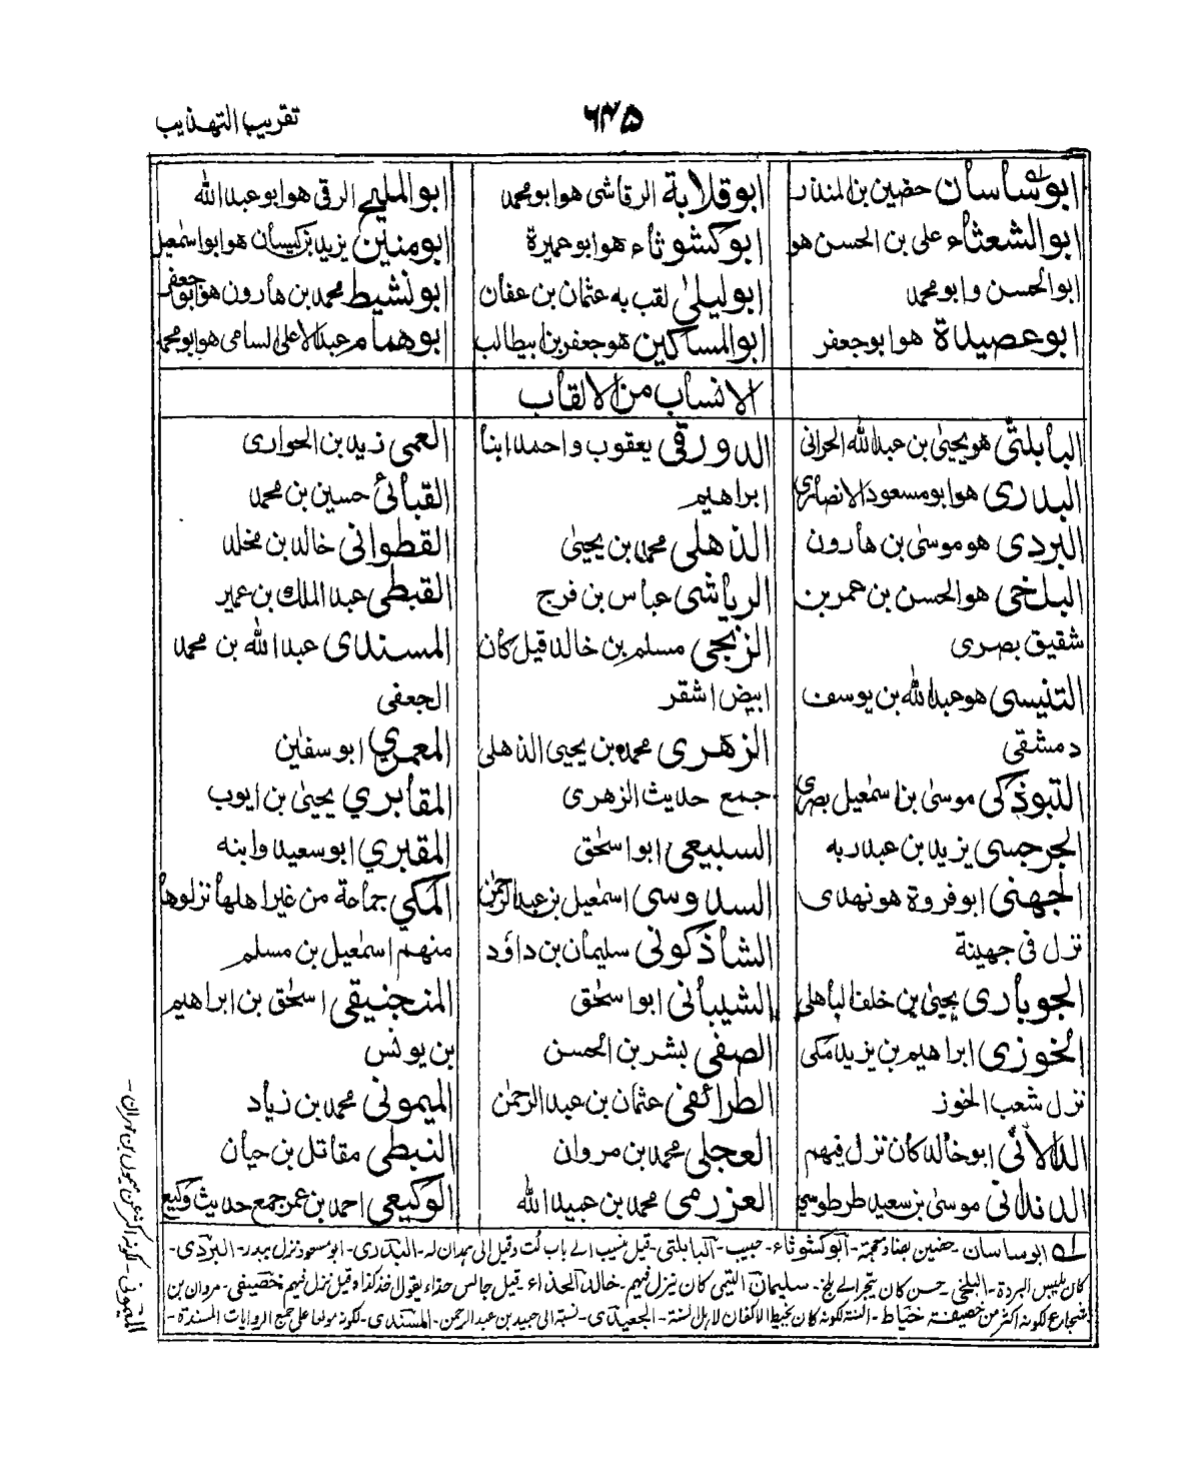 تقریب التهذیب
۶۴۵
ابو ساسان حضین بن المنذر
ابو الشعثاء علی بن الحسن هو
ابو الحسن و ابو محمد
ابو عصیدة هو ابو جعفر
ابو قلابة الرقاشی هو ابو محمد
ابو کشوثاء هو ابو حمیرة
ابو لیلیٰ لقب به عثمان بن عفان
ابو المساکین هو جعفر بن ابیطالب
ابو الملیح الرقی هو ابو عبد الله
ابو منین یزید بن کیسان هو ابو اسمٰعیل
ابو نشیط محمد بن هارون هو ابو جعفر
ابو همام عبد الاعلی السامی هو ابو محمد
الانساب من الالقاب
البابلتی هو یحییٰ بن عبد الله الحرانی
البدری هو ابو مسعود الانصاری
البردی هو موسیٰ بن هارون
البلخی هو الحسن بن عمر بن
شقیق بصری
التنیسی هو عبد الله بن یوسف
دمشقی
التبوذکی موسیٰ بن اسمٰعیل بصری
الجرجسی یزید بن عبد ربه
الجهنی ابو فروة هو نهدی
نزل فی جهینة
الجوباری یحییٰ بن خلف الباهلی
الخوزی ابراهیم بن یزید مکی
نزل شعب الخوز
الدالانی ابو خالد کان نزل فیهم
الدندانی موسیٰ بن سعید طرطوسی
الدورقی یعقوب و احمد ابنا
ابراهیم
الذهلی محمد بن یحییٰ
الریاشی عباس بن فرج
الزنجی مسلم بن خالد قیل کان
ابیض اشقر
الزهری محمد بن یحیی الذهلی
جمع حدیث الزهری
السبیعی ابو اسحٰق
السدوسی اسمٰعیل بن عبد الرحمٰن
الشاذکونی سلیمان بن داؤد
الشیبانی ابو اسحٰق
الصفی بشر بن الحسن
الطرائفی عثمان بن عبد الرحمٰن
العجلی محمد بن مروان
العزرمی محمد بن عبید الله
العمی زید بن الحواری
القبائی حسین بن محمد
القطوانی خالد بن مخلد
القبطی عبد الملک بن عمیر
المسندی عبد الله بن محمد
الجعفی
المعمری ابو سفیٰن
المقابری یحییٰ بن ایوب
المقبری ابو سعید وابنه
المکی جماعة من غیر اهلها نزلوها
منهم اسمٰعیل بن مسلم
المنجنیقی اسحٰق بن ابراهیم
بن یونس
المیمونی محمد بن زیاد
النبطی مقاتل بن حیان
الوکیعی احمد بن عمر جمع حدیث وکیع
ابو ساسان - حضین بضاد معجمة - ابو کشوثاء - حبیب - البابلتی - قیل نسب الی باب لت وقیل الی جدان له - البدری - ابو مسعود نزل ببدر - البردی -
کان یلبس البردة - البلخی - حسن کان یتجر الی بلخ - سلیمان التیمی کان ینزل فیهم - خالد الحذاء - قیل جالس حذاء یقول خذ کذا وقیل نزل فیهم خصیفی - مروان بن
شجاع لکونه اکثر من خصیف خیاط - السنة لکونه کان یخیط الاکفان لاهل السنة - الجعیدی - نسبة الی حمید بن عبد الرحمن - المسندی - لکونه مولعا علی جمع الروایات المسندة -
المیمونی - لکونه اکثر عن میمون بن مهران -